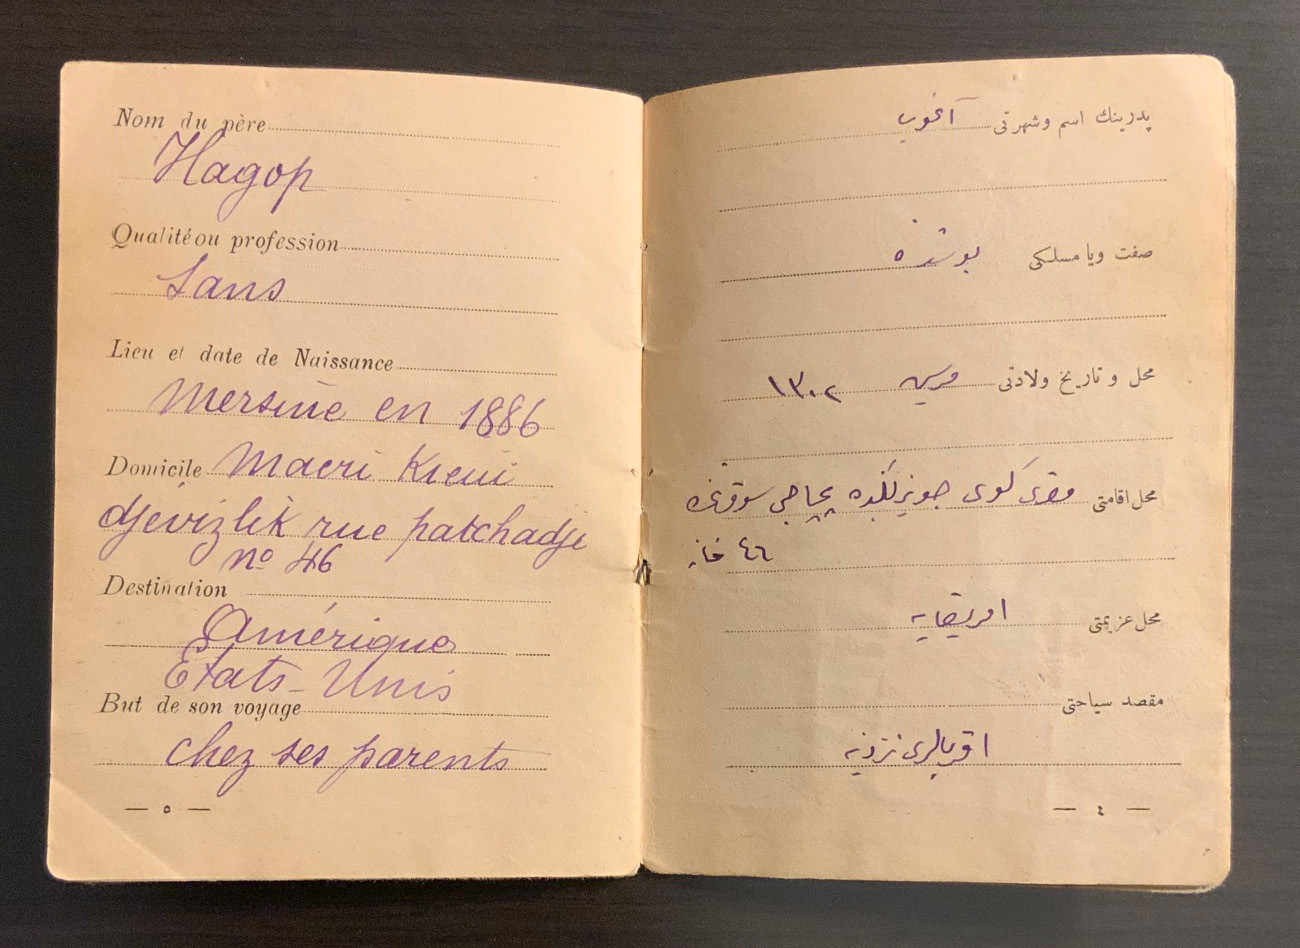 Nom du père
Hagop
Qualité ou profession
Sans
Lieu et date de Naissance
Mersine en 1886
Domicile Macri Kieui
djévizlik rue patchadji
no 46
Destination
Amérique
Etats-Unis
But de son voyage
chez ses parents
— ٥ —
پدرینك اسم وشهرتی آغوب
صفت ویا مسلكی بوشده
محل و تاریخ ولادتی مرسین ١٣٠٢
محل اقامتی مقری كوی جویزلكده پاچه جی سوقاغنده
٤٦ خانه
محل عزیمتی امریقایه
مقصد سیاحتی
اقربالری نزدینه
— ٤ —